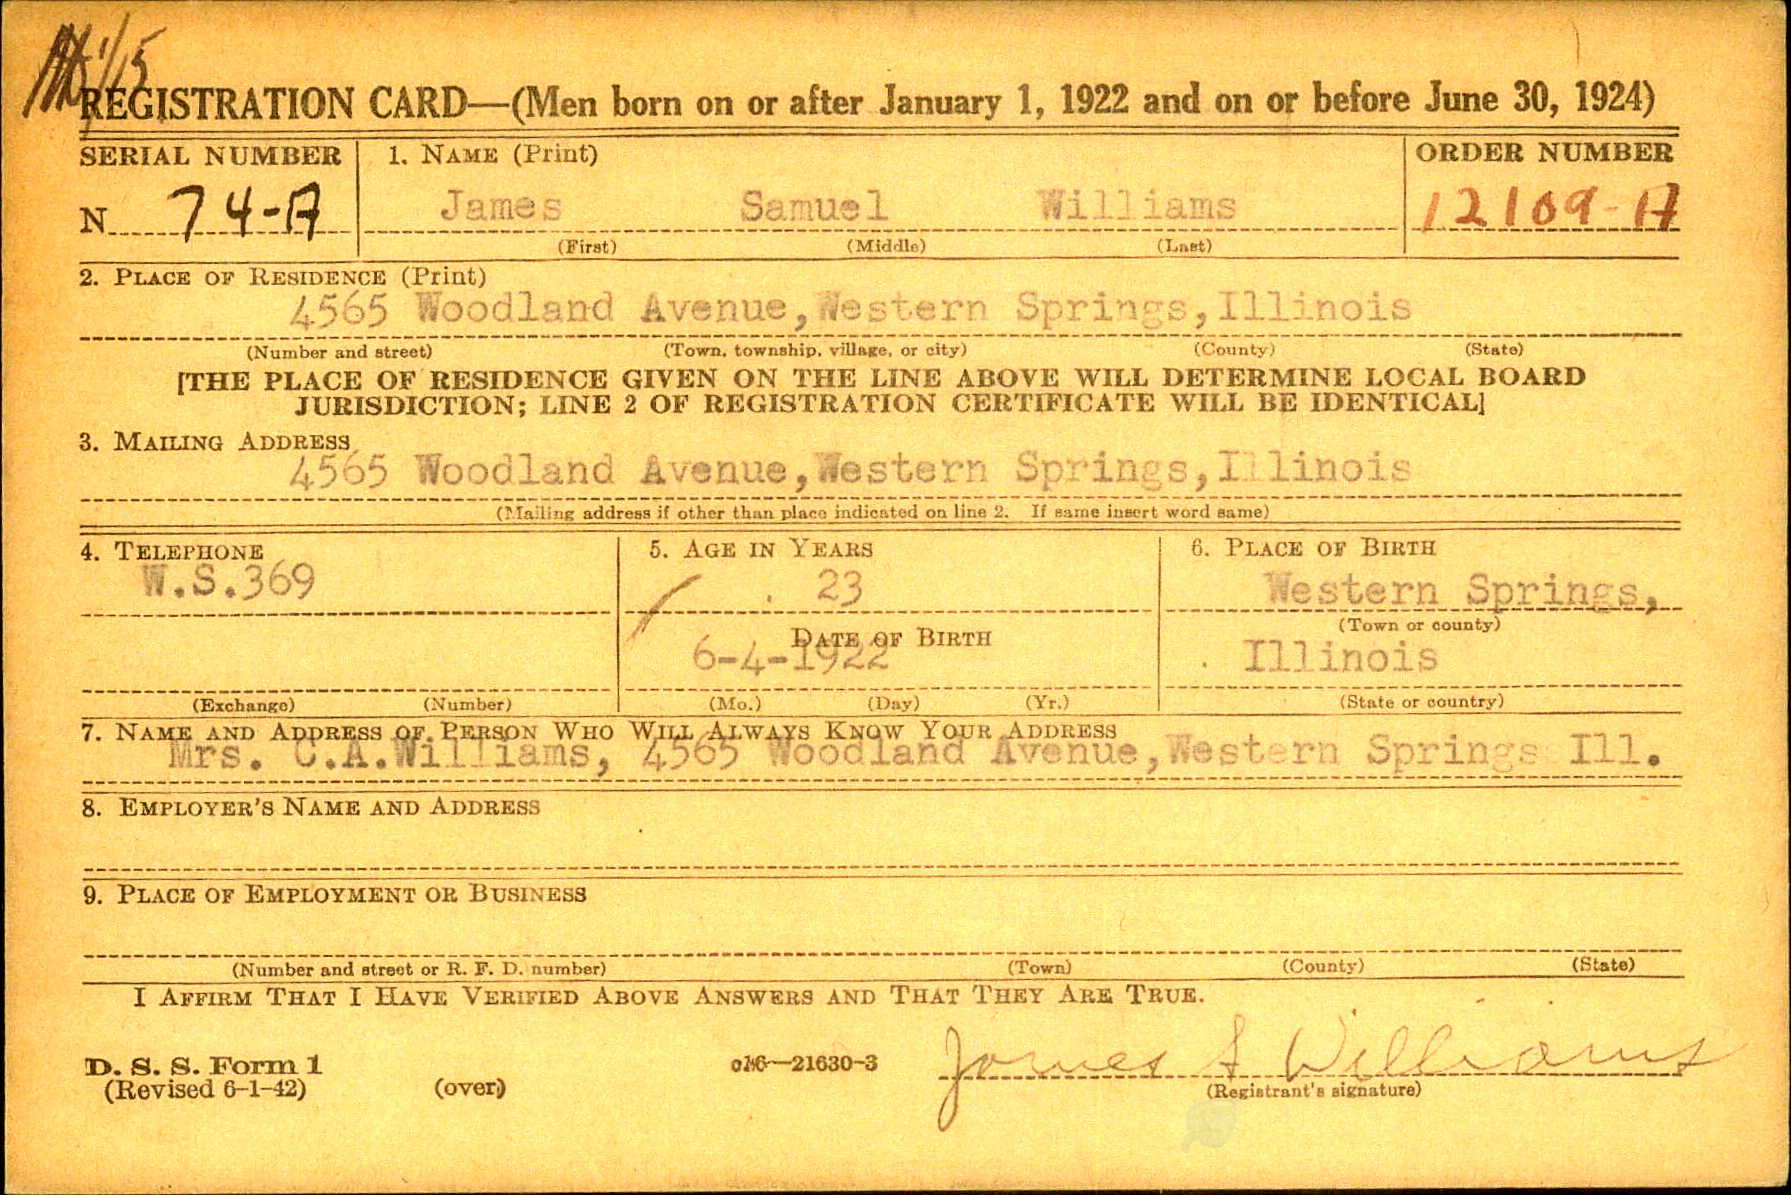 1/15
REGISTRATION CARD—(Men born on or after January 1, 1922 and on or before June 30, 1924)
SERIAL NUMBER 1. NAME (Print) ORDER NUMBER
N 74-A James Samuel Williams 12109-A
(First) (Middle) (Last)
2. PLACE OF RESIDENCE (Print)
4565 Woodland Avenue, Western Springs, Illinois
(Number and street) (Town, township, village, or city) (County) (State)
[THE PLACE OF RESIDENCE GIVEN ON THE LINE ABOVE WILL DETERMINE LOCAL BOARD
JURISDICTION; LINE 2 OF REGISTRATION CERTIFICATE WILL BE IDENTICAL]
3. MAILING ADDRESS
4565 Woodland Avenue, Western Springs, Illinois
(Mailing address if other than place indicated on line 2. If same insert word same)
4. TELEPHONE 5. AGE IN YEARS 6. PLACE OF BIRTH
W.S.369 23 Western Springs,
(Town or county)
DATE OF BIRTH
6-4-1922 Illinois
(Exchange) (Number) (Mo.) (Day) (Yr.) (State or country)
7. NAME AND ADDRESS OF PERSON WHO WILL ALWAYS KNOW YOUR ADDRESS
Mrs. C.A.Williams, 4565 Woodland Avenue, Western Springs Ill.
8. EMPLOYER'S NAME AND ADDRESS
9. PLACE OF EMPLOYMENT OR BUSINESS
(Number and street or R. F. D. number) (Town) (County) (State)
I AFFIRM THAT I HAVE VERIFIED ABOVE ANSWERS AND THAT THEY ARE TRUE.
James S Williams
D. S. S. Form 1 16—21630-3
(Revised 6-1-42) (over) (Registrant's signature)